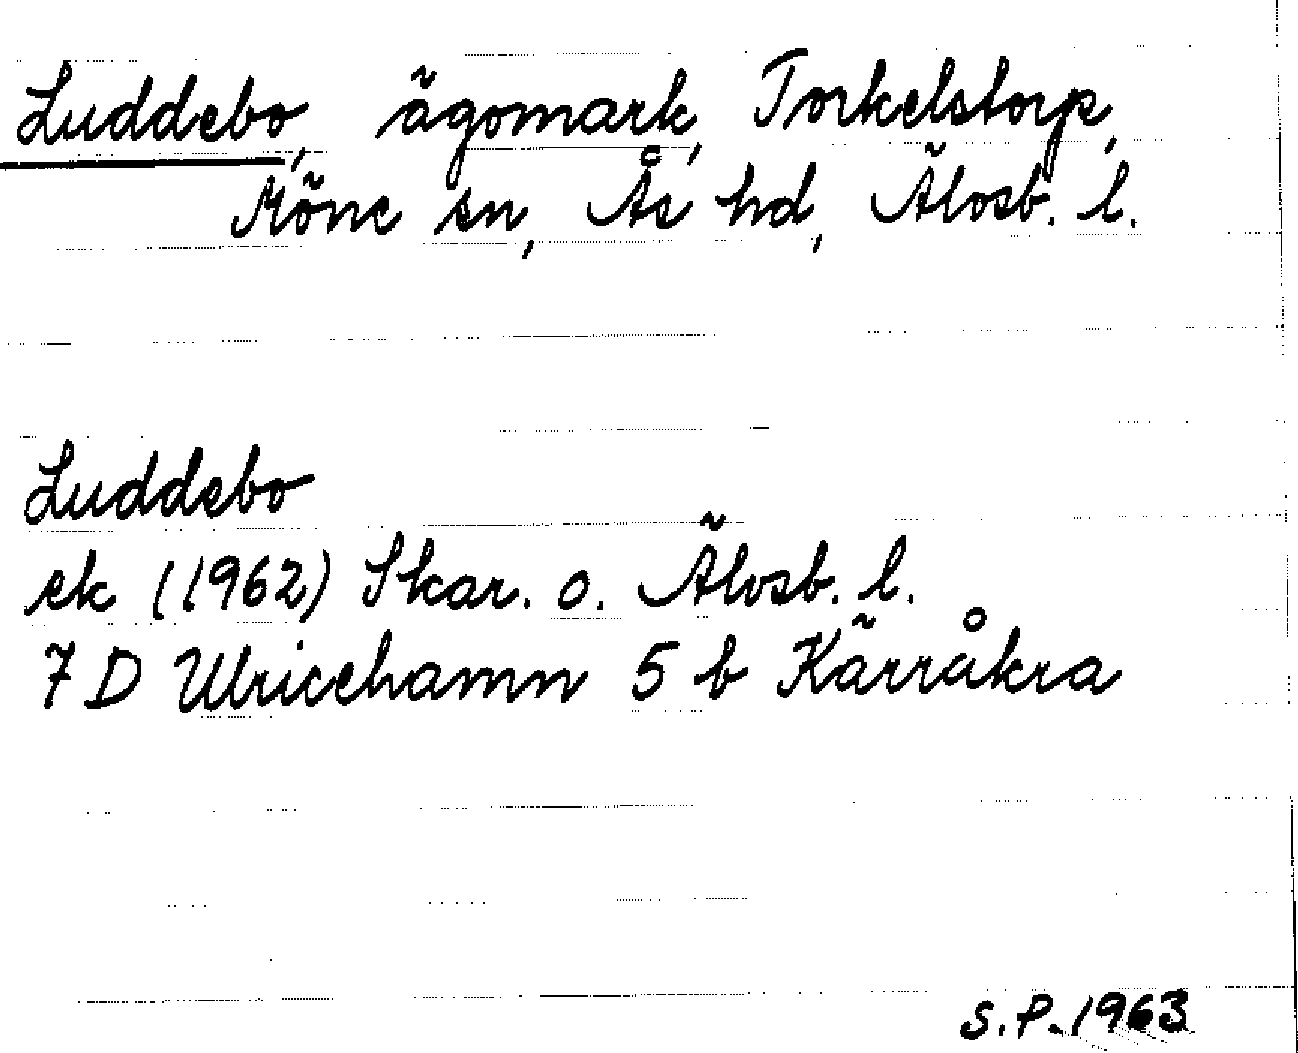 Luddebo, ägomark, Torkelstorp,
Möne sn, Ås hd, Älvsb. l.
Luddebo
ek (1962) Skar. o. Älvsb. l.
7 D Ulricehamn 5 b Kärråkra
S.P. 1963